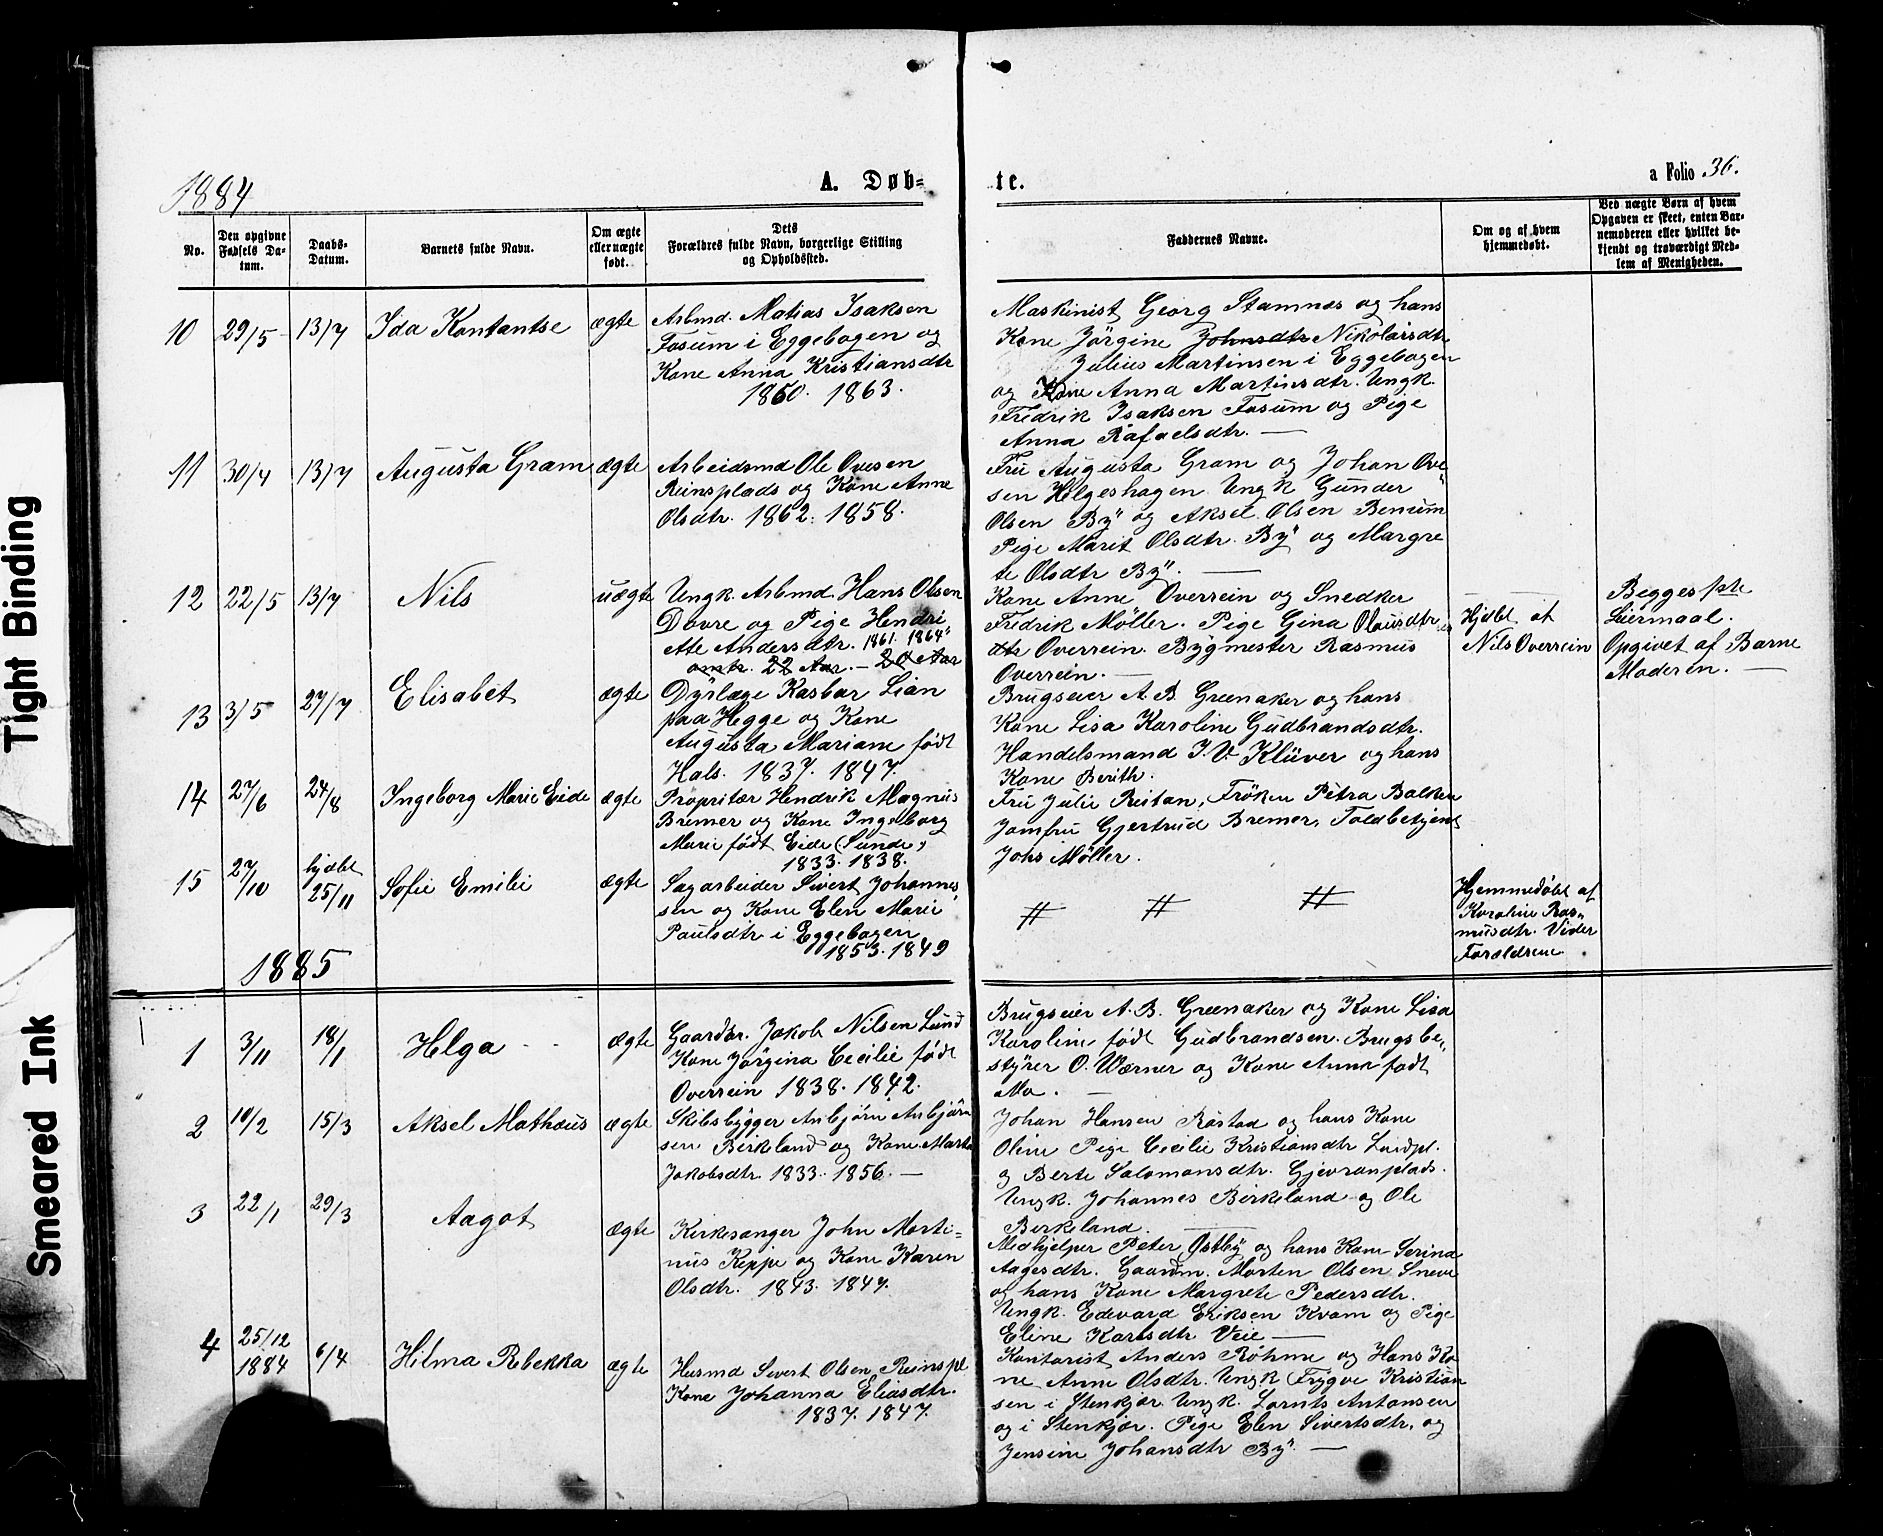 Tight Binding
Smeared Ink
1884
A. Døb-
te.
a Folio 36.
No.
Den opgivne
Fødsels Da-
tum.
Daabs-
Datum.
Barnets fulde Navn.
Om ægte
eller uægte
født.
Dets
Forældres fulde Navn, borgerlige Stilling
og Opholdssted.
Faddernes Navne.
Om og af hvem
hjemmedøbt.
Ved uægte Børn af hvem
Opgaven er skeet, enten Bar-
nemoderen eller hvilket be-
kjendt og troværdigt Med-
lem af Menigheden.
10 29/5 13/7 Ida Kontantse ægte
Arbmd. Matias Isaksen
Fosum i Eggebogen og
Kone Anna Kristiansdtr
1860. 1863.
Maskinist Georg Stamnes og hans
Kone Jörgine Johnsdtr Nikolaisdtr
Julius Martinsen i Eggebogen
og Kone Anna Martinsdtr. Ungk.
Fredrik Isaksen Fosum og Pige
Anna Rafaelsdtr. —
11 30/4 13/7 Augusta Gram ægte
Arbeidsmd Ole Ovesen
Reinsplads og Kone Anne
Olsdtr. 1862. 1858.
Fru Augusta Gram og Johan Ove"
sen Helgeshagen Ungk Gunder
Olsen By og Aksel Olsen Benum
Pige Marit Olsdtr. By og Margre
te Olsdtr By. —
12 22/5 13/7 Nils uægte
Ungk. Arbmd. Hans Olsen
Dovre og Pige Hendri
ette Andersdtr. 1861. 1864"
omtr. 22 Aar. - 20 Aar
Kone Anne Overrein og Snedker
Fredrik Möller. Pige Gina Olausdtr
dtr Overrein. Bygmester Rasmus
Overrein. —
Hjdbt. af
Nils Overrein
Begges
Leiermaal.
Opgivet af Barne
Moderen. —
13 3/5 27/7 Elisabet ægte
Dyrlæge Kasbar Lian
paa Hegge og Kone
Augusta Mariane født
Hals. 1837. 1847.
Brugseier A. B. Greenaker og hans
Kone Lisa Karoline Gudbrandsdtr.
Handelsmand I. V. Klüver og hans
Kone Berith.
14 27/6 24/8 Ingeborg Marie Eide ægte
Propritær Hendrik Magnus
Bremer og Kone Ingeborg
Marie født Eide (Sunde)
1833. 1838.
Fru Julie Reitan, Fröken Petra Balken
Jomfru Gjertrud Bremer, Toldbetjent
Johs Möller.
15 27/10 hjdbt 25/11 Sofie Emilie ægte
Sagarbeider Sivert Johannes
sen og Kone Elen Marie
Paulsdtr i Eggebogen
1853. 1849
Hjemmedöbt af
Karoline Ras"
musdtr. Vider
Forældrene
1885
1 3/11 18/1 Helga ægte
Gaardbr. Jakob Nilsen Lund
Kone Jörgina Cecilie født
Overrein 1838. 1842.
Brugseier A. B. Greenaker og Kone Lisa
Karoline født Gudbrandsen. Brugsbe"
styrer O. Wærner og Kone Anna født
Mo. —
2 10/2 15/3 Aksel Mathæus ægte
Skibsbygger Arnbjörn Arnbjörn
sen Birkeland og Kone Marta
Jakobsdtr. 1833. 1856. —
Johan Hansen Röstad og hans Kone
Oline Pige Cecilie Kristiansdtr Lundpl.
og Berte Salomonsdtr. Gjevranplads.
Ungk. Johannes Birkeland og Ole
Birkeland. —
3 22/1 29/3 Aagot ægte
Kirkesanger John Marti=
nus Keppe og Kone Karen
Olsdtr. 1843. 1847.
Medhjelper Peter Östby og hans Kone Serina
Aagesdtr. Gaardm. Morten Olsen Sneve
og hans Kone Margrete Pedersdtr.
Ungk. Edvard Eriksen Kvam og Pige
Eline Karlsdtr Veie —
4 25/12 1884 6/4 Hilma Rebekka ægte
Husmd Sivert Olsen Reinspl
Kone Johanna Eliasdtr.
1837. 1847.
Kontorist Anders Röhme og Hans Ko
ne Anne Olsdtr. Ungk Trygve Kristian
sen i Stenkjær Ungk. Lornts Antonsen
og i Stenkjær. Pige Elen Sivertsdtr. og
Jensine Johansdtr By. —